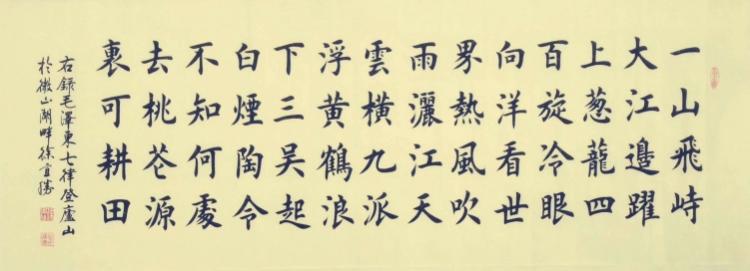 一山飛峙
大江邊躍
上葱龍四
百旋冷眼
向洋看世
界熱風吹
雨灑江天
雲橫九派
浮黄鶴浪
下三吴起
白煙陶令
不知何處
去桃花源
裏可耕田
右録毛澤東七律登廬山
於微山湖畔徐宜勝